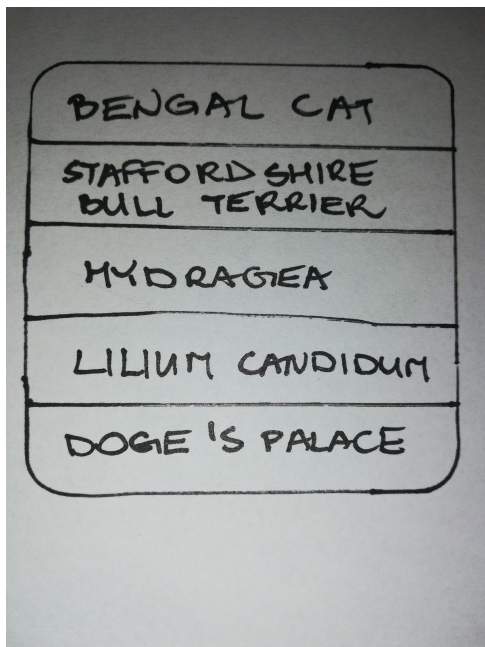 BENGAL CAT
STAFFORDSHIRE
BULL TERRIER
HYDRAGEA
LILIUM CANDIDUM
DOGE'S PALACE